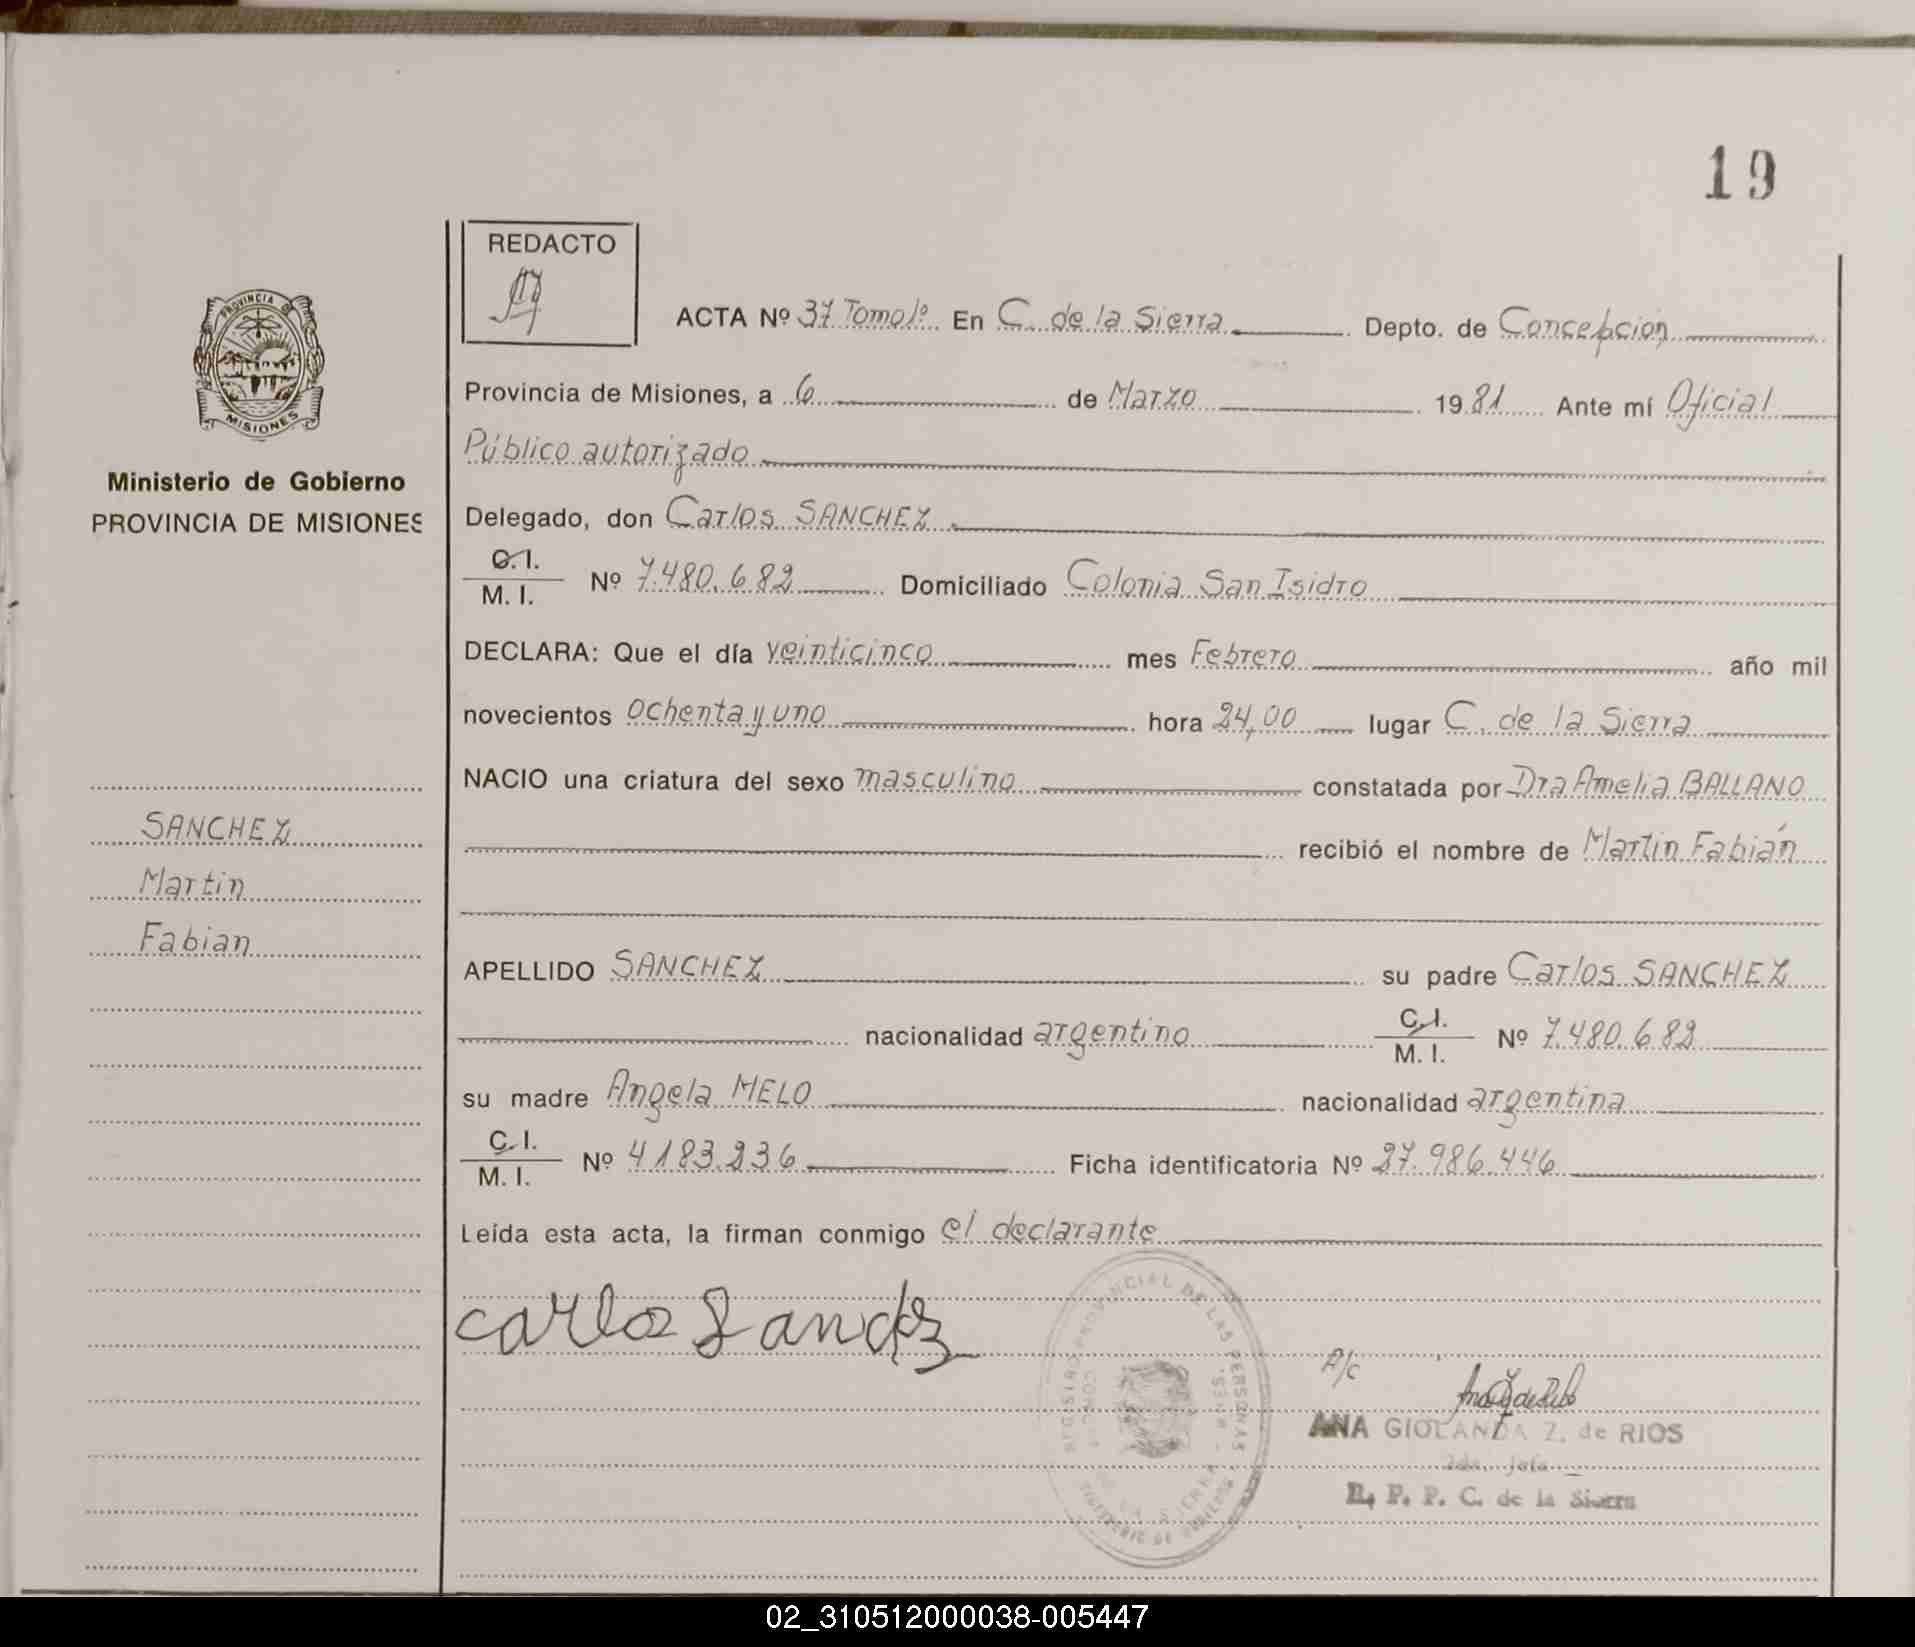 19
REDACTO
PROVINCIA DE
MISIONES
Ministerio de Gobierno
PROVINCIA DE MISIONES
ACTA Nº 37 Tomo 1º En C. de la Sierra Depto. de Concepción
Provincia de Misiones, a 6 de Marzo 1981 Ante mí Oficial
Público autorizado
Delegado, don Carlos SANCHEZ
C.I. M.I. Nº 7.480.682 Domiciliado Colonia San Isidro
DECLARA: Que el día veinticinco mes Febrero año mil
novecientos ochenta y uno hora 24,00 lugar C. de la Sierra
NACIO una criatura del sexo masculino constatada por Dra Amelia BALLANO
recibió el nombre de Martin Fabián
SANCHEZ
Martin
Fabian
APELLIDO SANCHEZ su padre Carlos SANCHEZ
nacionalidad argentino C.I. M.I. Nº 7.480.682
su madre Angela MELO nacionalidad argentina
C.I. M.I. Nº 4183.236 Ficha identificatoria Nº 27.986.446
Leída esta acta, la firman conmigo el declarante
Carlos Sanchez
REGISTRO PROVINCIAL DE LAS PERSONAS
DE LA SIERRA
A/c
ANA GIOLANDA Z. de RIOS
2da. Jefe
R. P. P. C. de la Sierra
02_310512000038-005447